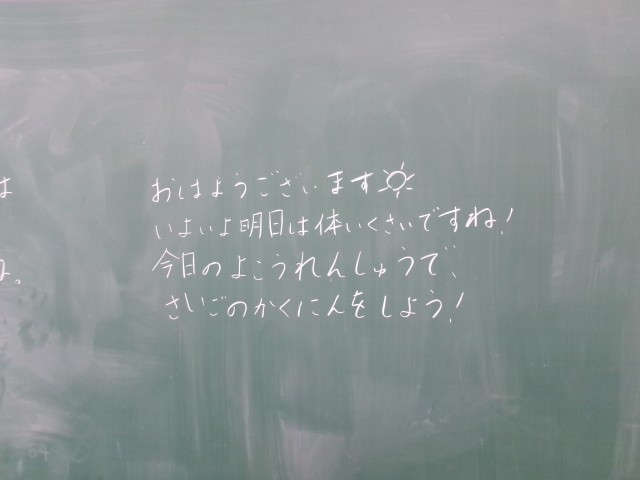 は
おはようございます
いよいよ明日は体いくさいですね!
今日のよこうれんしゅうで、
ね。
さいごのかくにんをしよう!